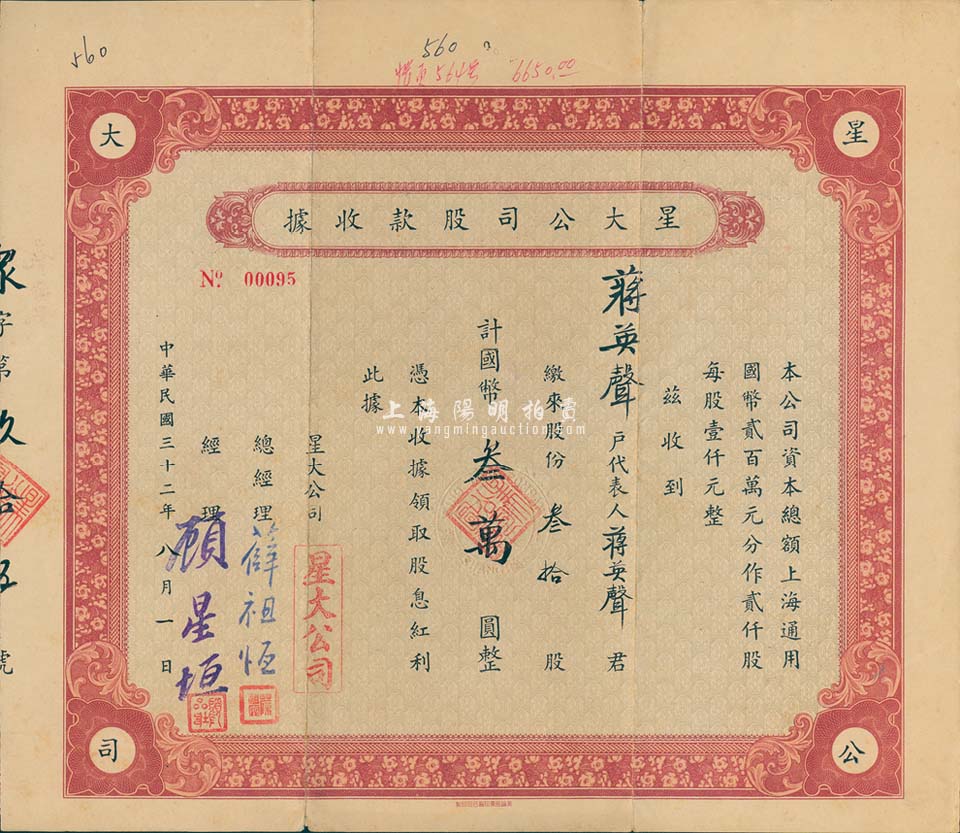 560
560
6650.00
星 大 公 司
星大公司股款收據
No. 00095
本公司資本總額上海通用
國幣貳百萬元分作貳仟股
每股壹仟元整
茲收到
蔣英聲 戶代表人 蔣英聲 君
繳來股份 叁拾 股
計國幣 叁萬 圓整
憑本收據領取股息紅利
此據
星大公司
星大公司
總經理 薛祖恆
經理 顧星垣
中華民國三十二年八月一日
字第玖拾五號
上海陽明拍賣
www.yangmingauction.com